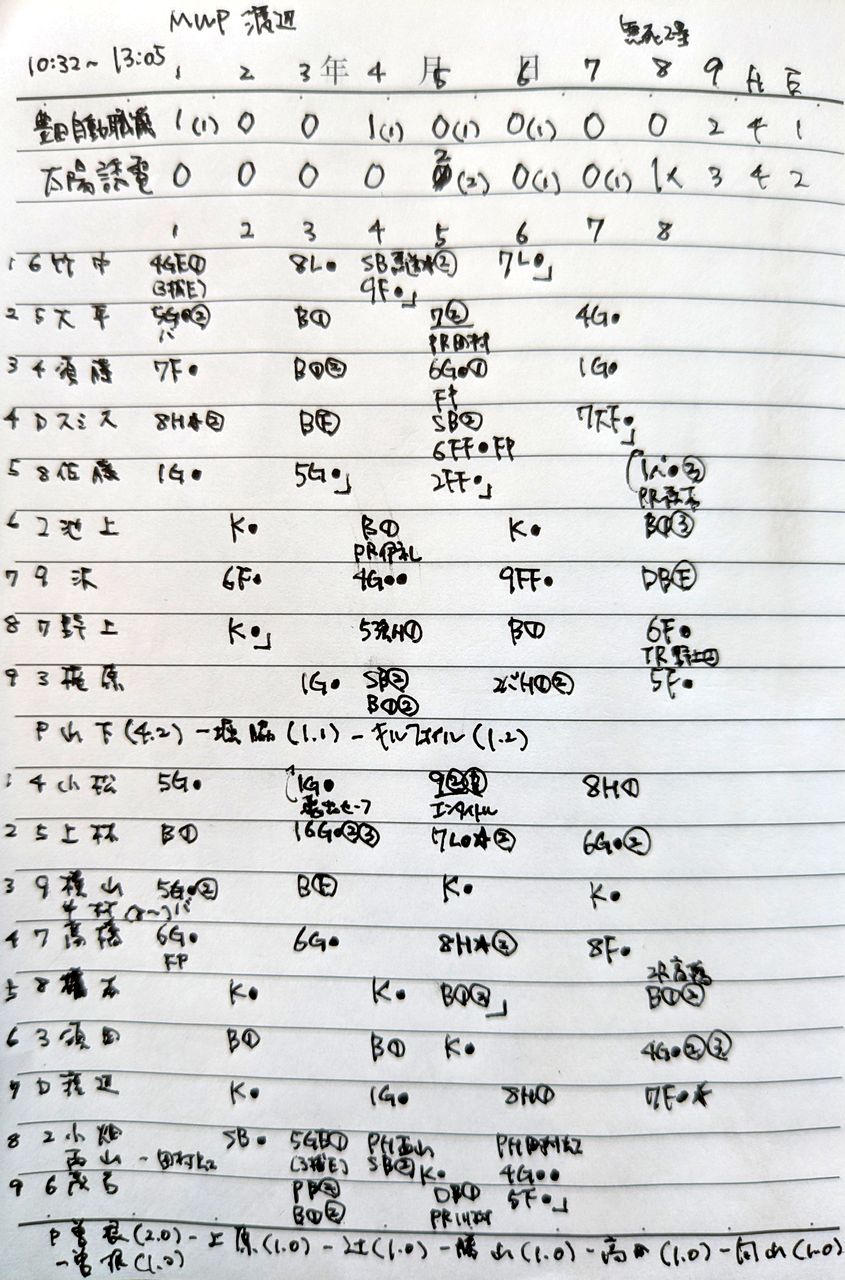 MWP 渡辺
無死2塁
10:32～13:05 1 2 3 年 4 月 5 日 6 7 8 9 H E
豊田自動織機 1(1) 0 0 1(1) 0(1) 0(1) 0 0 2 4 1
太陽誘電 0 0 0 0 2(2) 0(1) 0(1) 1x 3 4 2
1 2 3 4 5 6 7 8
1 6 竹中 4GE① 8L・ SB ② 7L・」
(3捕E) 9F・」
2 5 大平 5G・② B① 7② 4G・
バ PR田村
3 4 須藤 7F・ B①② 6G・① 1G・
F
4 D スミス 8H ② BE SB② 7FF・」
6FF・FP
5 8 佐藤 1G・ 5G・」 2FF・」 1 ・③
PR
6 2 池上 K・ B① K・ B①③
PR伊礼
7 9 沢 6F・ 4G・・ 9FF・ DBE
8 7 野上 K・」 5 H① B① 6F・
TR野上②
9 3 梶原 1G・ SB② 2バH①② 5F・
B①②
P 山下(4.2) － 堀脇(1.1) － キルフォイル(1.2)
1 4 山松 5G・ 1G・ 9②③ 8H①
エンタイトル
2 5 上林 B① 16G・②③ 7L・ ② 6G・②
3 9 横山 5G・② BE K・ K・
中村(8～) バ
4 7 髙橋 6G・ 6G・ 8H ③ 8F・
FP 2R高橋
5 8 K・ K・ B①②」 B①②
6 3 須田 B① B① K・ 4G・②③
7 D 渡辺 K・ 1G・ 8H① 7F・
8 2 小畑 SB・ 5GE① PH西山 PH田村紅
西山 － 田村紅 (3捕E) SB② K・ 4G・・
9 6 PB③ DB① 5F・」
B①② PR川村
P 曽根(2.0) － 上原(1.0) － 辻(1.0) － 勝山(1.0) － (1.0) － (1.0)
－曽根(1.0)